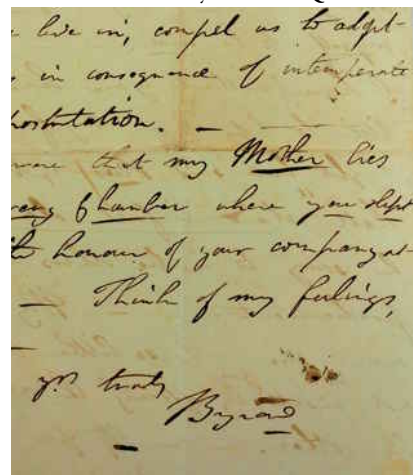 live in, compel us to adopt
in consequence of intemperate
that my Mother lies
Chamber where you slept
honour of your company at
— Think of my feelings,
yrs truly
Byron